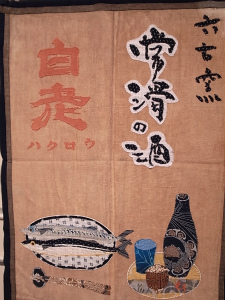 六古窯
常滑の酒
白老
ハクロウ